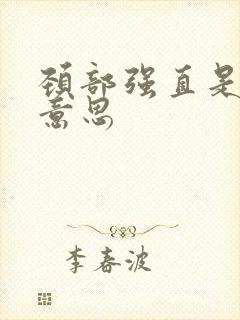 颈部强直是
意思
李春波